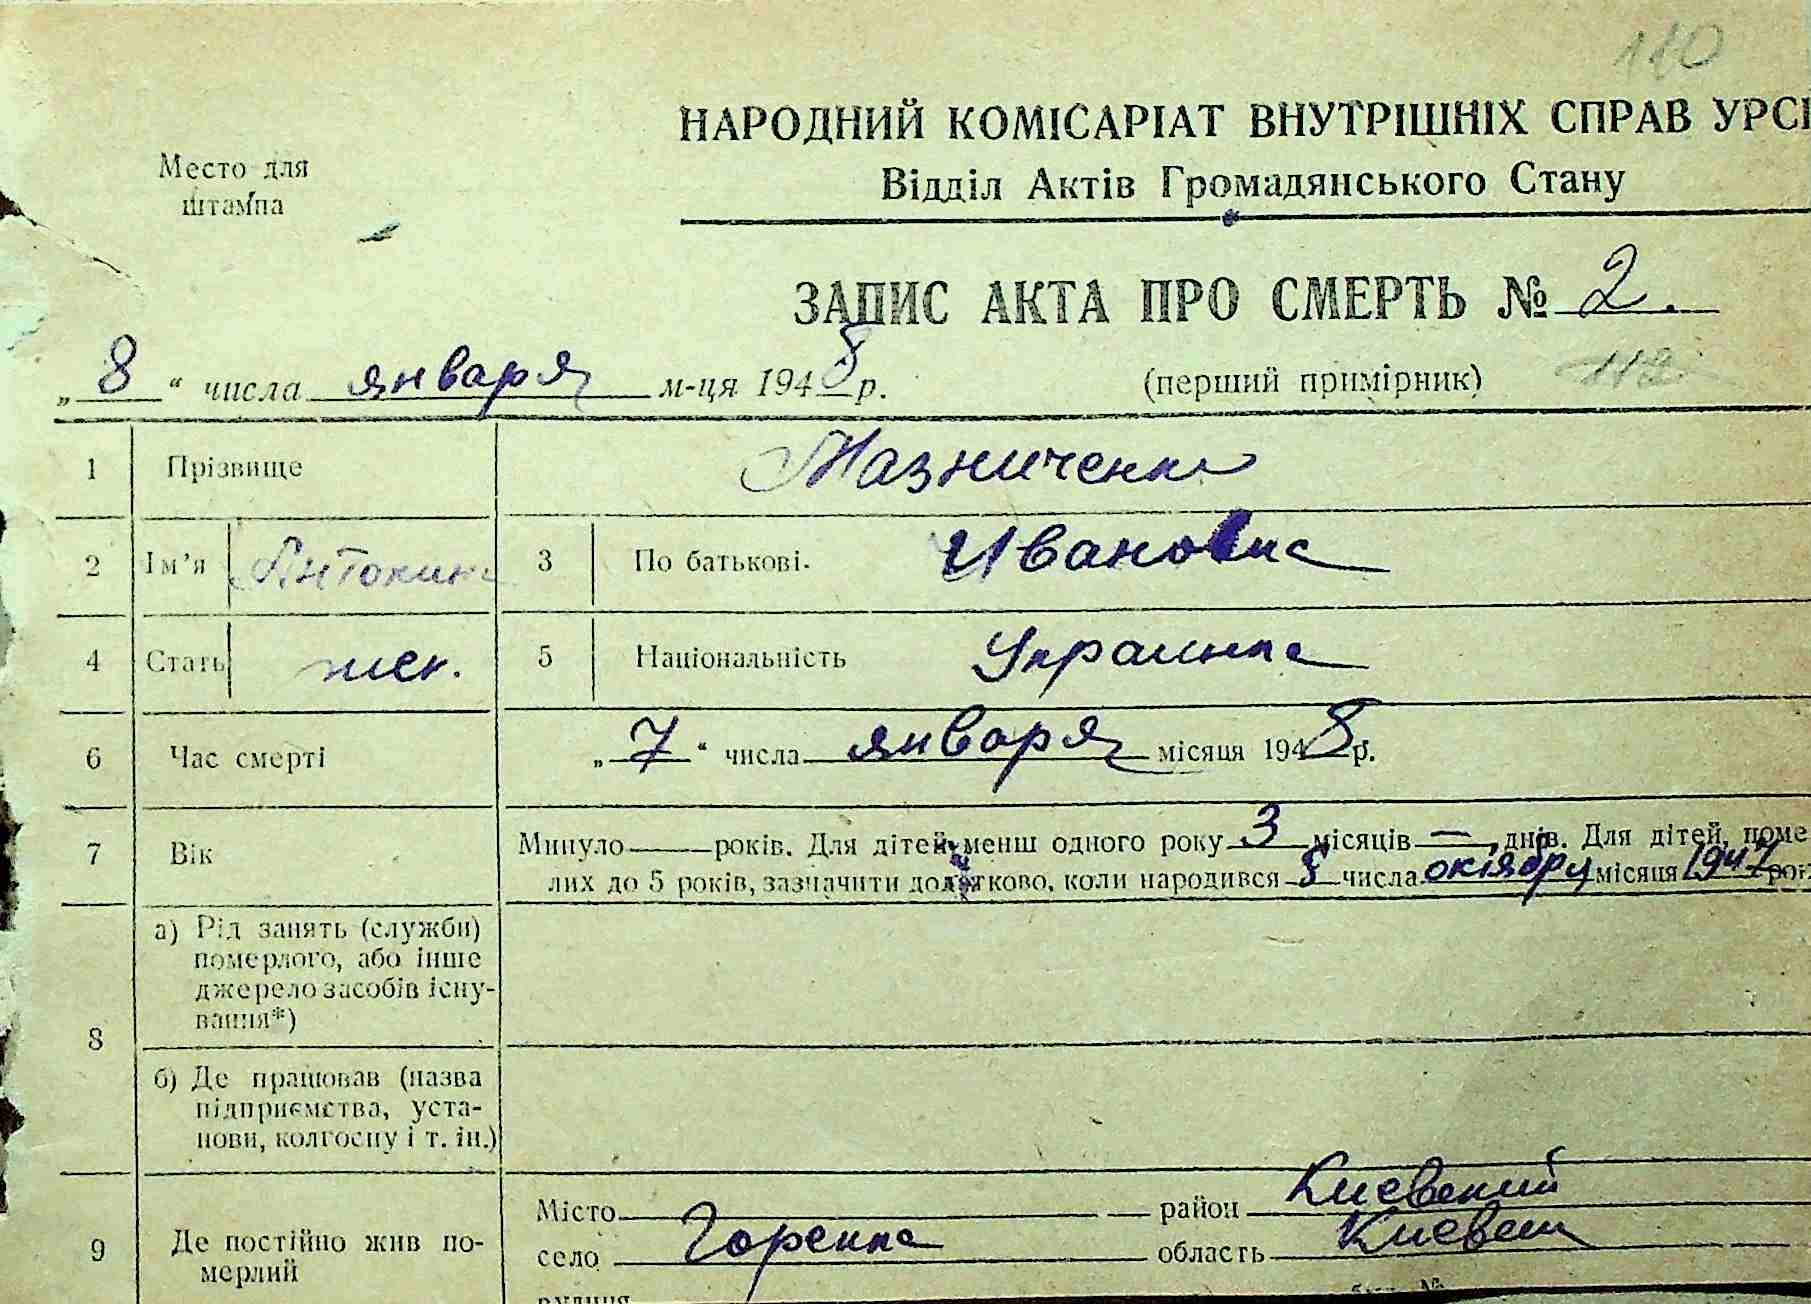 110
НАРОДНИЙ КОМІСАРІАТ ВНУТРІШНІХ СПРАВ УРСР
Відділ Актів Громадянського Стану
Место для
штампа
ЗАПИС АКТА ПРО СМЕРТЬ № 2.
„8“ числа января м-ця 1948 р.
(перший примірник) 112
1 Прізвище Мазниченко
2 Ім’я Антонина 3 По батькові. Ивановна
4 Стать жен. 5 Національність Украинка
6 Час смерті „7“ числа января місяця 1948 р.
7 Вік Минуло — років. Для дітей менш одного року 3 місяців —, днів. Для дітей, поме-
лих до 5 років, зазначити додатково, коли народився 8 числа октября місяця 1947 рок
8 а) Рід занять (служби)
померлого, або інше
джерело засобів існу-
вання*)
б) Де працював (назва
підприємства, уста-
нови, колгоспу і т. ін.)
9 Де постійно жив по-
мерлий
Місто — район Киевский
село Горенка область Киевск
вулиця №